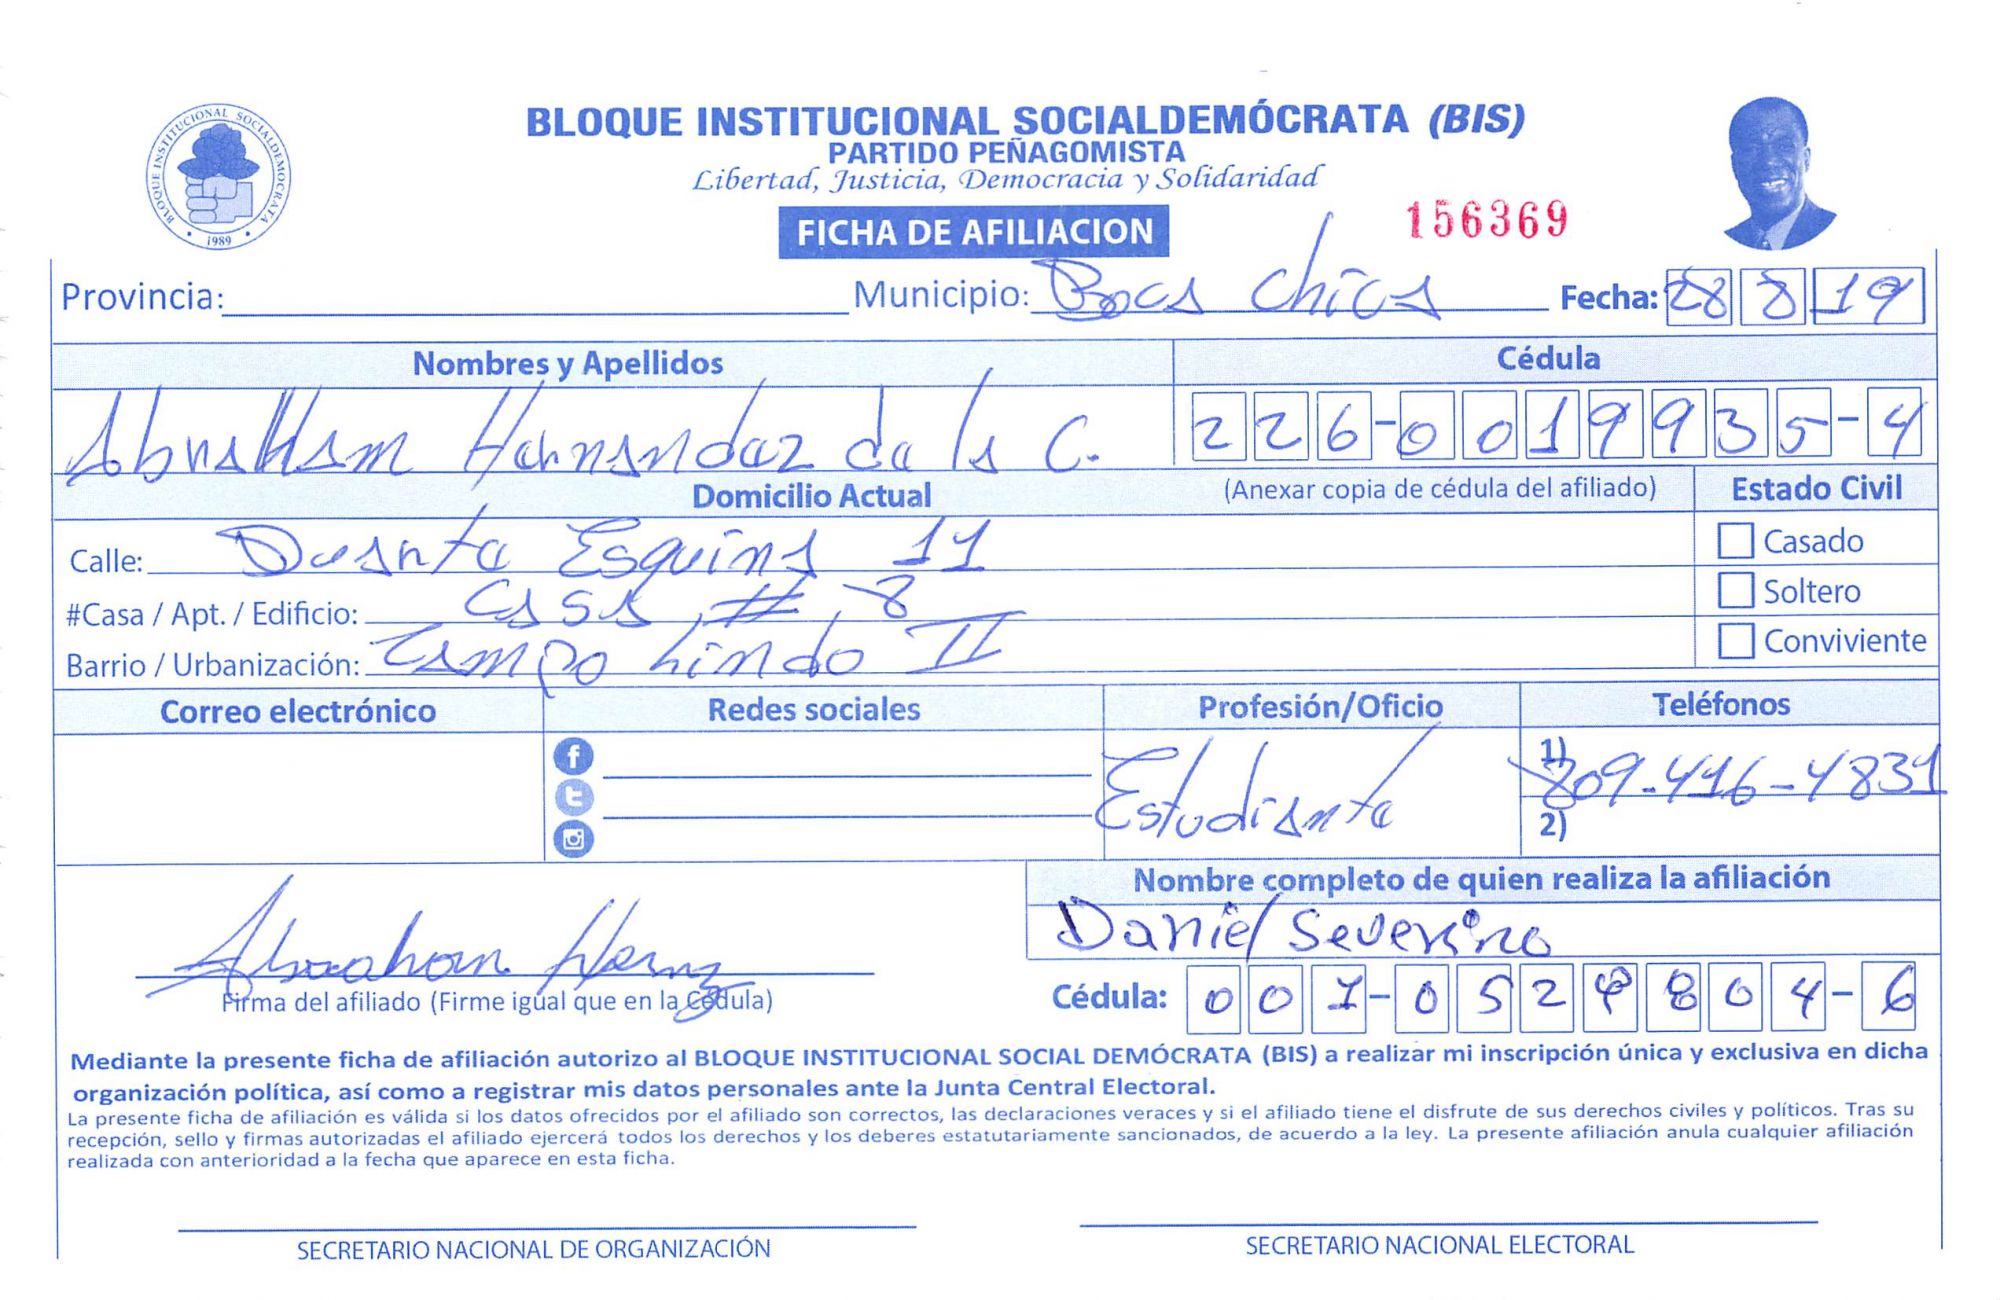 BLOQUE INSTITUCIONAL SOCIALDEMOCRATA
1989
BLOQUE INSTITUCIONAL SOCIALDEMÓCRATA (BIS)
PARTIDO PEÑAGOMISTA
Libertad, Justicia, Democracia y Solidaridad
FICHA DE AFILIACION
156369
Provincia: Municipio: Boca Chica Fecha: 28 8 19
Nombres y Apellidos Cédula
Abraham Hernandez de la C. 226-0019935-4
Domicilio Actual (Anexar copia de cédula del afiliado) Estado Civil
Calle: Duarte Esquina 11 Casado
#Casa / Apt. / Edificio: Casa # 8 Soltero
Barrio / Urbanización: Campo Lindo II Conviviente
Correo electrónico Redes sociales Profesión/Oficio Teléfonos
Estudiante 1) 809-416-4831
2)
Nombre completo de quien realiza la afiliación
Daniel Severino
Abraham
Firma del afiliado (Firme igual que en la Cédula) Cédula: 001-0529804-6
Mediante la presente ficha de afiliación autorizo al BLOQUE INSTITUCIONAL SOCIAL DEMÓCRATA (BIS) a realizar mi inscripción única y exclusiva en dicha
organización política, así como a registrar mis datos personales ante la Junta Central Electoral.
La presente ficha de afiliación es válida si los datos ofrecidos por el afiliado son correctos, las declaraciones veraces y si el afiliado tiene el disfrute de sus derechos civiles y políticos. Tras su
recepción, sello y firmas autorizadas el afiliado ejercerá todos los derechos y los deberes estatutariamente sancionados, de acuerdo a la ley. La presente afiliación anula cualquier afiliación
realizada con anterioridad a la fecha que aparece en esta ficha.
SECRETARIO NACIONAL DE ORGANIZACIÓN SECRETARIO NACIONAL ELECTORAL